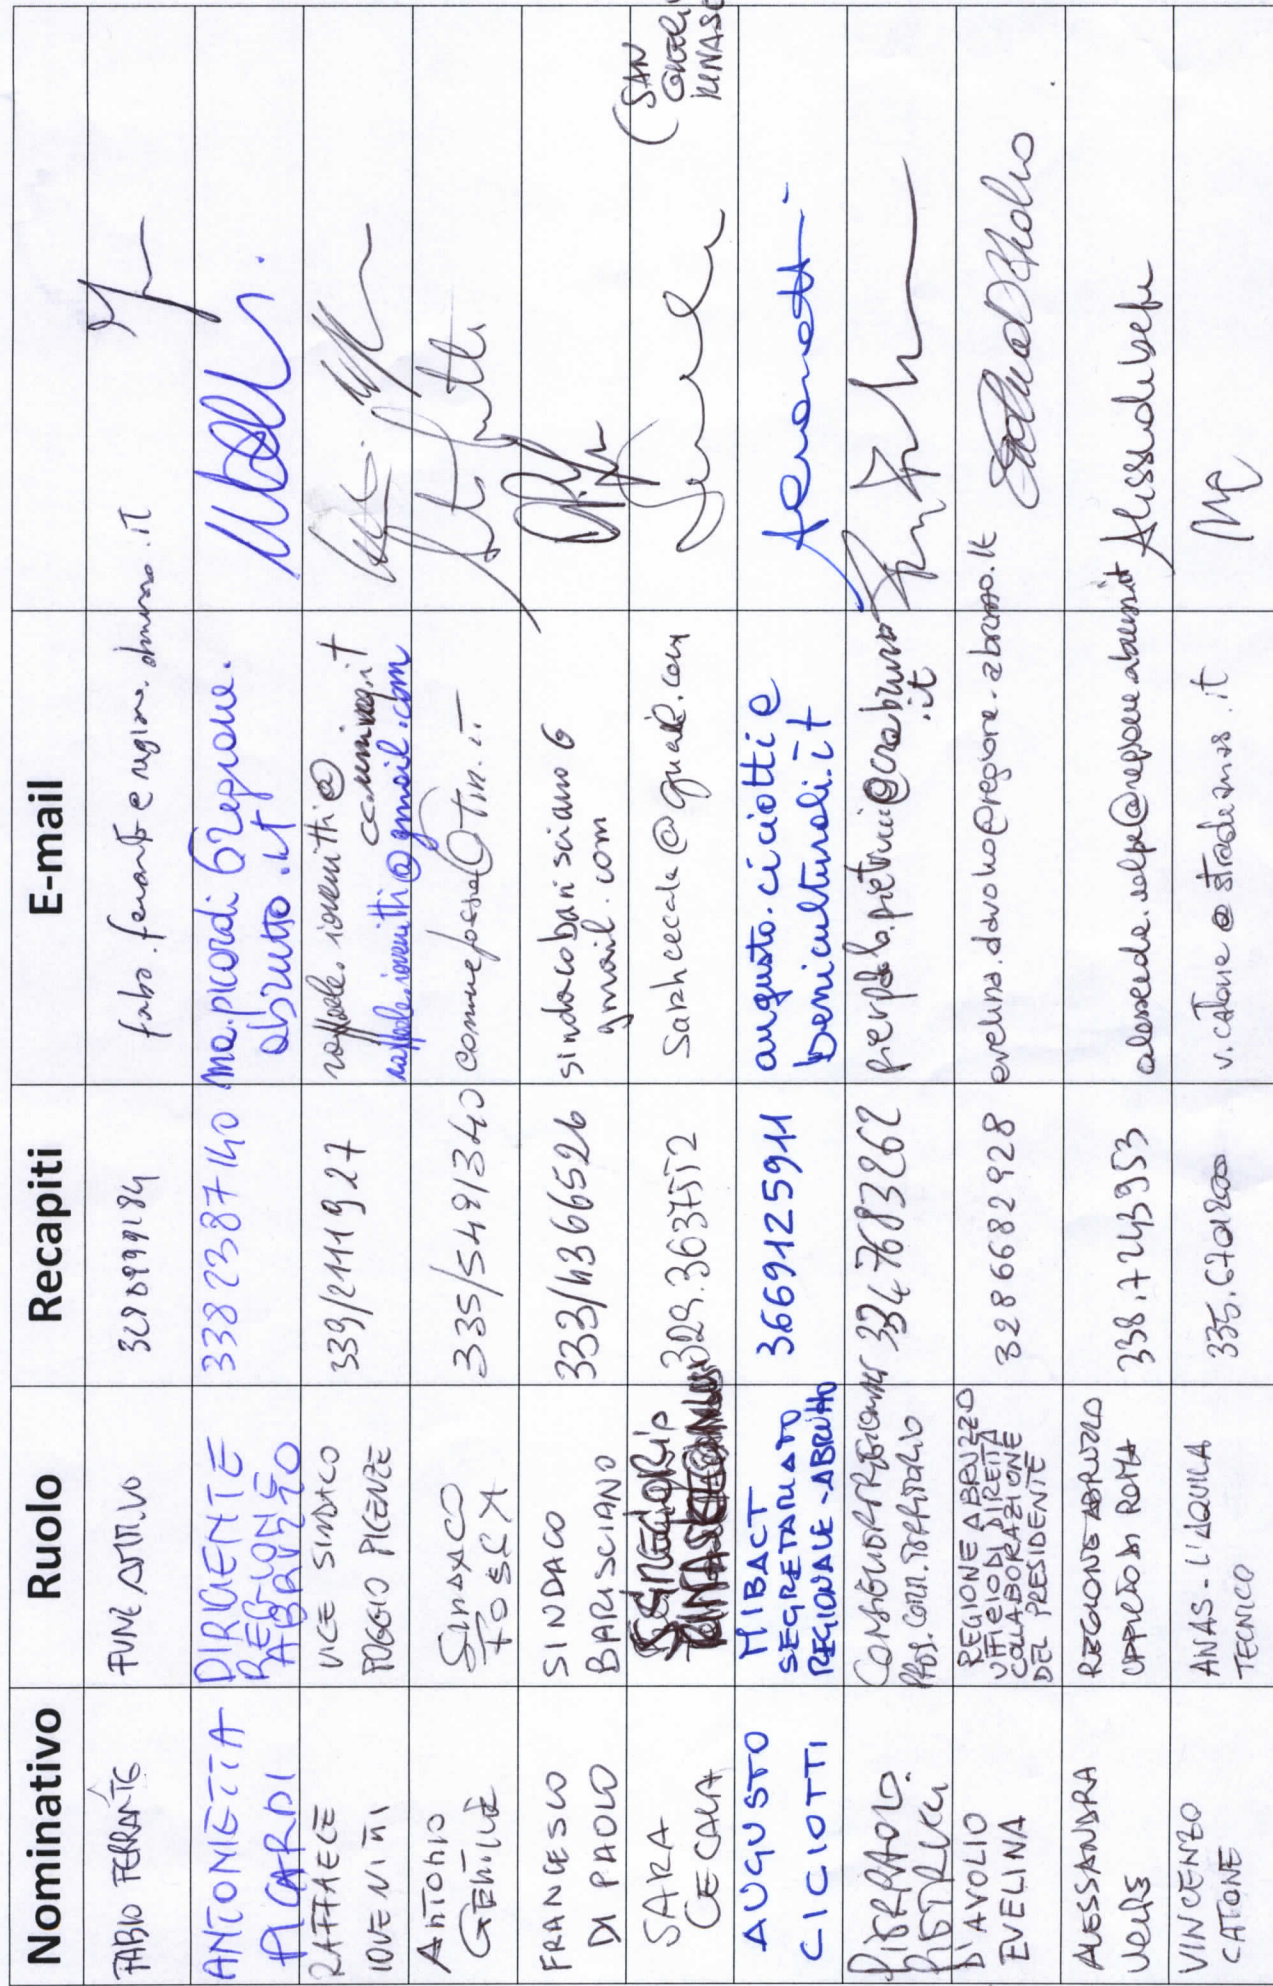 Nominativo Ruolo Recapiti E-mail
FABIO FERRANTE
FUNZ. 
fabio.ferrante@regione.abruzzo.it
ANTONIETTA
PICARDI
DIRIGENTE
REGIONE
ABRUZZO
3382387140
ma.picardi@regione.
abruzzo.it
RAFFAELE
IOVENITTI
VICE SINDACO
POGGIO PICENZE
339/2111927
raffaele.iovenitti@
raffaele.iovenitti@gmail.com
ANTONIO
GENTILE
SINDACO
FOSSA
335/5491340
comunefossa@tin.it
FRANCESCO
DI PAOLO
SINDACO
BARISCIANO
333/4366526
sindacobarisciano@
gmail.com
SARA
CECALA
329.3637552
sarahcecala@gmail.com
(SAN
AUGUSTO
CICIOTTI
MIBACT
SEGRETARIATO
REGIONALE - ABRUZZO
3669125911
augusto.ciciotti@
beniculturali.it
PIERPAOLO
PIETRUCCI
CONSIGLIERE REGIONALE
PRES. COMM. TERRITORIO
3347683262
pierpaolo.pietrucci@crabruzzo
.it
D'AVOLIO
EVELINA
REGIONE ABRUZZO
UFFICIO DI DIRETTA
COLLABORAZIONE
DEL PRESIDENTE
3286682928
evelina.davolio@regione.abruzzo.it
ALESSANDRA
REGIONE ABRUZZO
UFFICIO DI ROMA
338.7243953
VINCENZO
CATONE
ANAS - L'AQUILA
TECNICO
v.catone@stradeanas.it